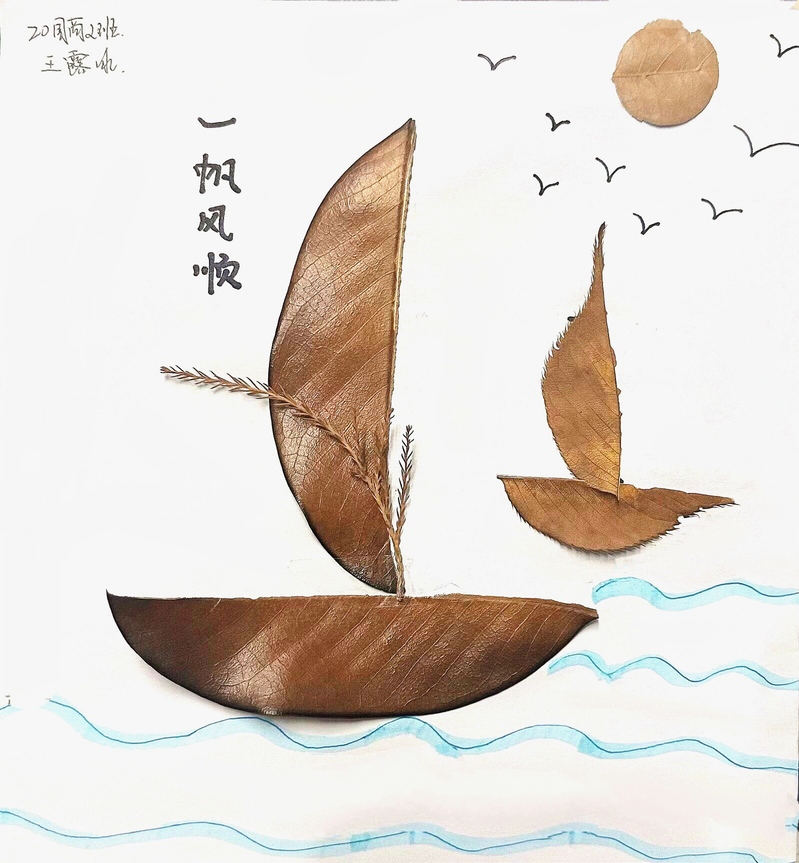 20国商2班.
王露冰.
一帆风顺